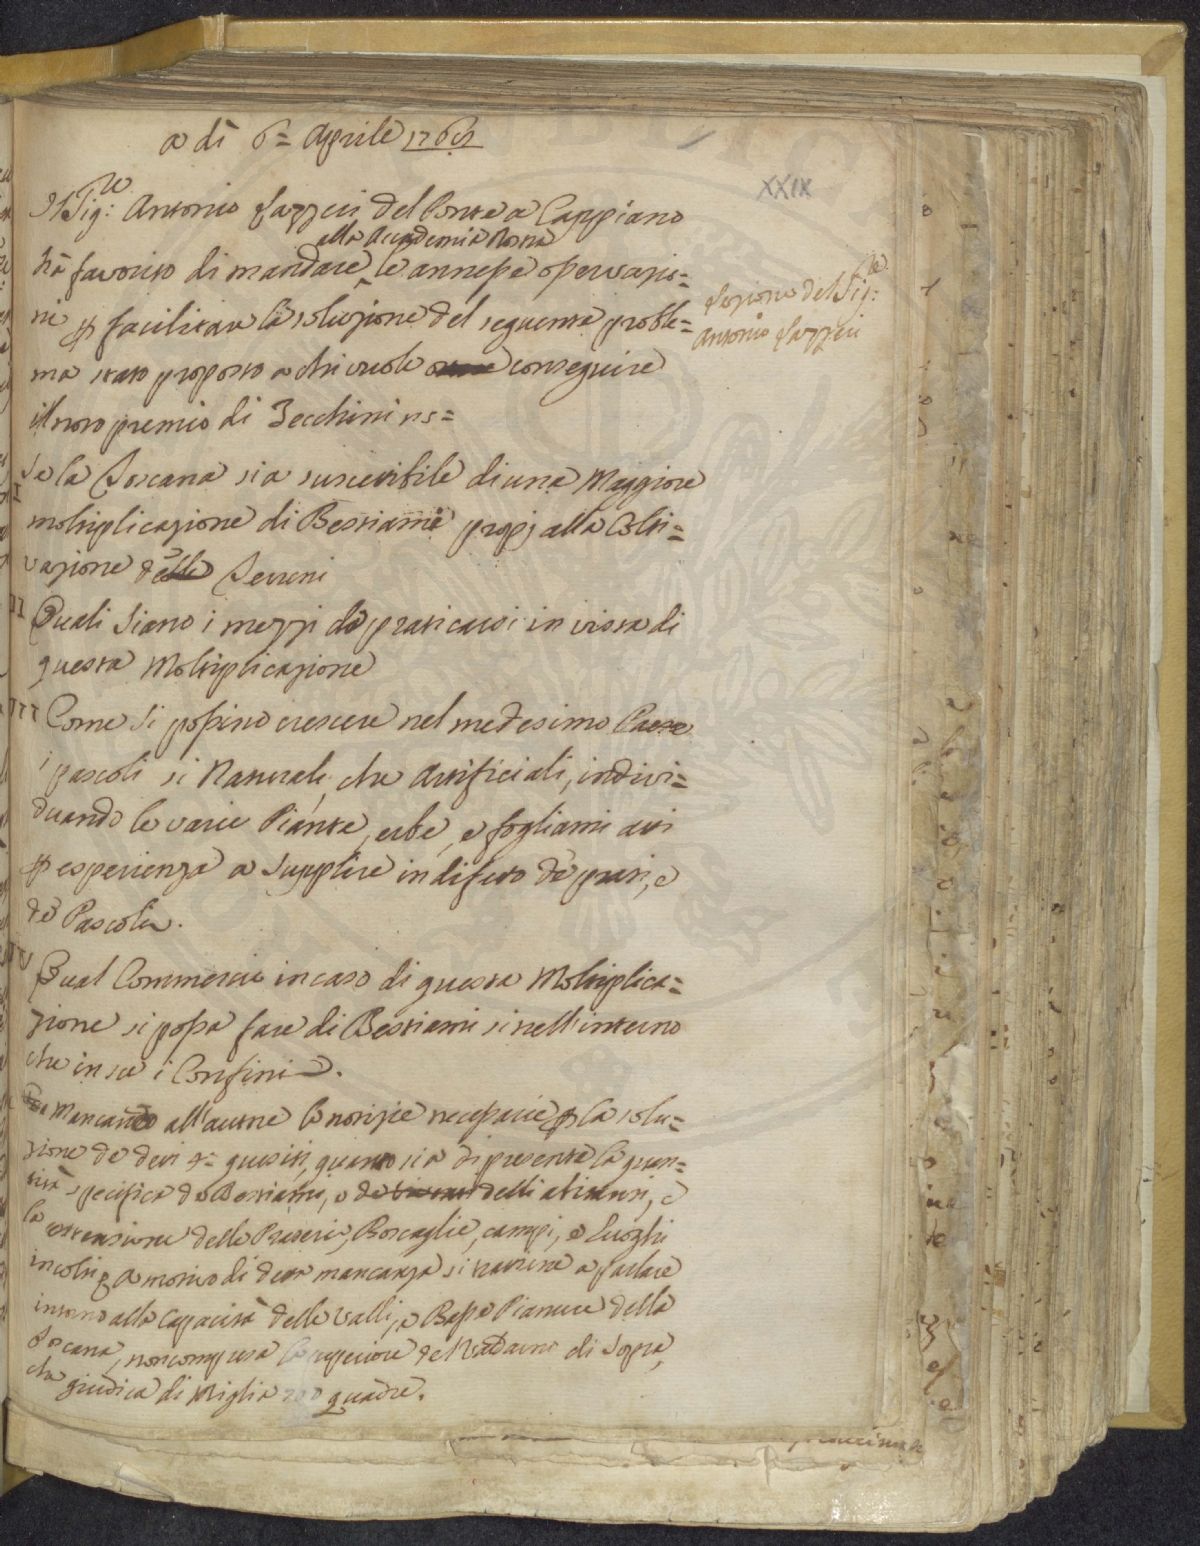 a dì 6= Aprile 1769
XXIX
Il Sig:re Antonio Lazzeri del Ponte a Cappiano
alla Accademia Nostra
hà favorito di mandare le annesse osservazio=
ni p facilitare la soluzione del seguente proble=
ma stato proposto a chi vuole conseguire
il noto premio di Zecchini 25=
Lezione del Sig:re
Antonio Lazzeri
I Se la Toscana sia suscettibile di una Maggiore
moltiplicazione di Bestiame proprj alla Colti=
vazione de Terreni
II Quali Siano i mezzi da praticarsi in vista di
questa Moltiplicazione
III Come si possino crescere nel medesimo Paese
i pascoli si Naturali, che Artificiali, indivi=
duando le varie Piante, erbe, e fogliami atti
p esperienza a Supplire in difetto de prati, e
de Pascoli.
IV Qual Commercio in caso di questa Moltiplica=
zione si possa fare di Bestiami si nell'interno
che in su i Confini.
Mancando all'autore le notizie necessarie p la solu=
zione de detti 4= quesiti, quanto sia di presente la quan=
tità specifica de Bestiami, e delli abitanti, e
la estensione delle Praterie, Boscaglie, campi, e Luoghi
incolti, a motivo di detta mancanza si ristrine a parlare
intorno alla Capacità delle Valli, e Basse Pianure della
Toscana, non compresa la superiore del Valdarno di Sopra,
che giudica di Miglia 200 quadre.